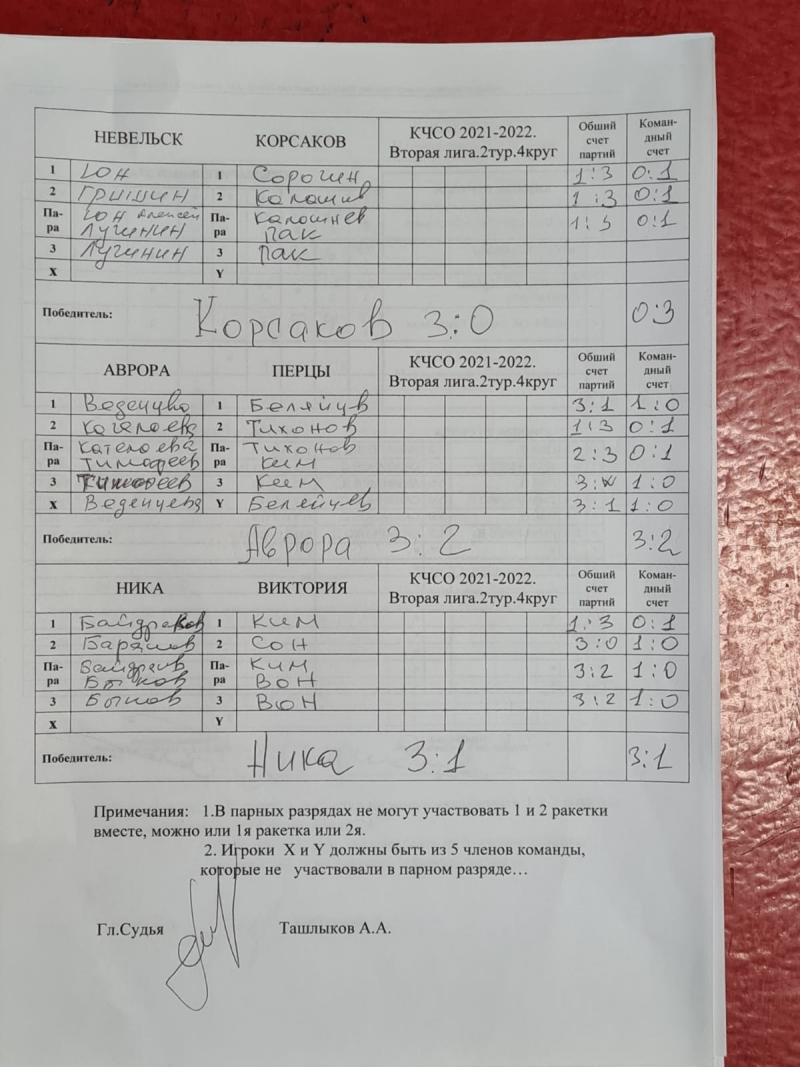 НЕВЕЛЬСК КОРСАКОВ КЧСО 2021-2022. Вторая лига.2тур.4круг Общий счет партий Коман-дный счет
1 ЮН 1 Сорочин 1:3 0:1
2 ГРИШИН 2 1:3 0:1
Па-ра ЮН Алексей Па-ра Калошнев 1:3 0:1
ЛУЧИНИН ПАК
3 ЛУЧИНИН 3 ПАК
X Y
Победитель: Корсаков 3:0 0:3
АВРОРА ПЕРЦЫ КЧСО 2021-2022. Вторая лига.2тур.4круг Общий счет партий Коман-дный счет
1 1 3:1 1:0
2 2 Тихонов 1:3 0:1
Па-ра Па-ра Тихонов 2:3 0:1
Тимофеев Ким
3 Тимофеев 3 Ким 3:W 1:0
X Y 3:1 1:0
Победитель: Аврора 3:2 3:2
НИКА ВИКТОРИЯ КЧСО 2021-2022. Вторая лига.2тур.4круг Общий счет партий Коман-дный счет
1 1 КИМ 1:3 0:1
2 2 СОН 3:0 1:0
Па-ра Па-ра КИМ 3:2 1:0
Быков ВОН
3 Быков 3 ВОН 3:2 1:0
X Y
Победитель: Ника 3:1 3:1
Примечания: 1.В парных разрядах не могут участвовать 1 и 2 ракетки
вместе, можно или 1я ракетка или 2я.
2. Игроки X и Y должны быть из 5 членов команды,
которые не участвовали в парном разряде…
Гл.Судья Ташлыков А.А.